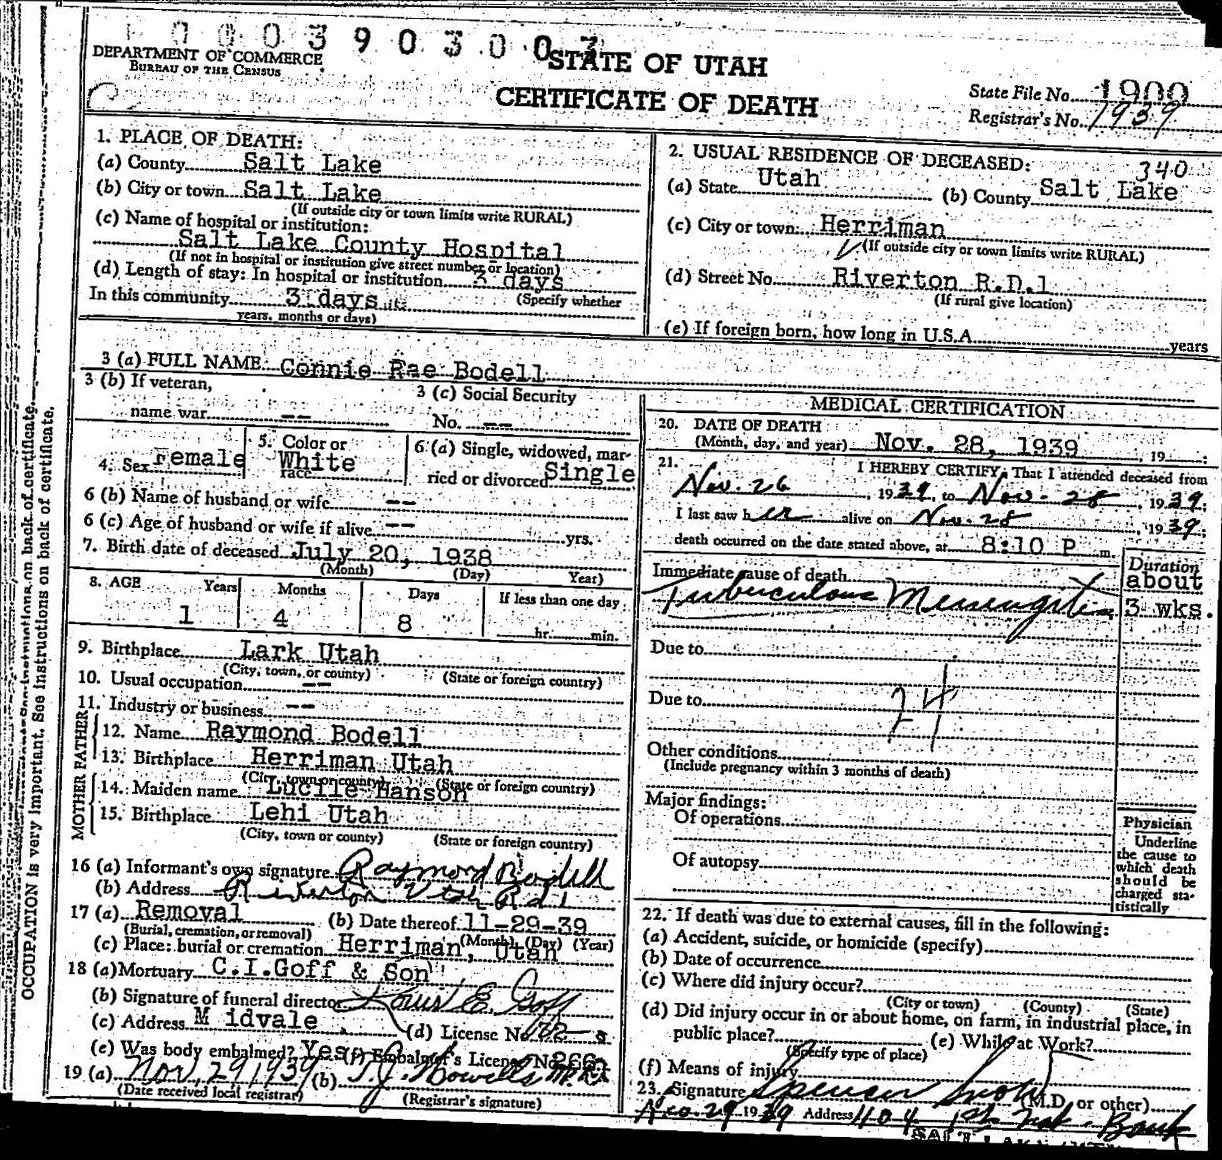 0003903003
DEPARTMENT OF COMMERCE
BUREAU OF THE CENSUS
STATE OF UTAH
CERTIFICATE OF DEATH
State File No. 1900
Registrar's No. 1939
1. PLACE OF DEATH:
(a) County Salt Lake
(b) City or town Salt Lake
(If outside city or town limits write RURAL)
(c) Name of hospital or institution:
Salt Lake County Hospital
(If not in hospital or institution give street number or location)
(d) Length of stay: In hospital or institution 3 days
In this community 3 days (Specify whether
years, months or days)
2. USUAL RESIDENCE OF DECEASED: 340
(a) State Utah (b) County Salt Lake
(c) City or town: Herriman
(If outside city or town limits write RURAL)
(d) Street No. Riverton R.D.1
(If rural give location)
(e) If foreign born, how long in U.S.A. years
3 (a) FULL NAME Connie Rae Bodell
3 (b) If veteran,
name war --
3 (c) Social Security
No. --
4. Sex Female
5. Color or
race White
6 (a) Single, widowed, mar-
ried or divorced Single
6 (b) Name of husband or wife --
6 (c) Age of husband or wife if alive -- yrs.
7. Birth date of deceased July 20, 1938
(Month) (Day) Year)
8. AGE Years Months Days If less than one day
1 4 8 hr. min.
9. Birthplace Lark Utah
(City, town, or county) (State or foreign country)
10. Usual occupation --
11. Industry or business --
FATHER
12. Name Raymond Bodell
13. Birthplace Herriman Utah
(City, town or county) (State or foreign country)
MOTHER
14. Maiden name Lucile Hanson
15. Birthplace Lehi Utah
(City, town or county) (State or foreign country)
16 (a) Informant's own signature Raymond Bodell
(b) Address Riverton Utah R.d.1
17 (a) Removal (b) Date thereof 11-29-39
(Burial, cremation, or removal) (Month) (Day) (Year)
(c) Place: burial or cremation Herriman, Utah
18 (a) Mortuary C.I.Goff & Son
(b) Signature of funeral director Louis E. Goff
(c) Address Midvale (d) License No.
(e) Was body embalmed? Yes (f) Embalmer's License No. 266
19 (a) Nov. 29 1939 (b)
(Date received local registrar) (Registrar's signature)
MEDICAL CERTIFICATION
20. DATE OF DEATH
(Month, day, and year) Nov. 28, 1939, 19
21. I HEREBY CERTIFY, That I attended deceased from
Nov. 26, 1939, to Nov. 28, 1939;
I last saw her alive on Nov. 28, 1939;
death occurred on the date stated above, at 8:10 P m.
Immediate cause of death
Tuberculous Meningitis
Duration
about
3 wks.
Due to
Due to 24
Other conditions
(Include pregnancy within 3 months of death)
Major findings:
Of operations
Of autopsy
Physician
Underline
the cause to
which death
should be
charged sta-
tistically
22. If death was due to external causes, fill in the following:
(a) Accident, suicide, or homicide (specify)
(b) Date of occurrence
(c) Where did injury occur?
(City or town) (County) (State)
(d) Did injury occur in or about home, on farm, in industrial place, in
public place? (e) While at Work?
(Specify type of place)
(f) Means of injury
23. Signature Spencer Snow (M.D. or other)
Nov. 29 1939 Address 1104 1st Nat. Bank
OCCUPATION is very important. See instructions on back of certificate.